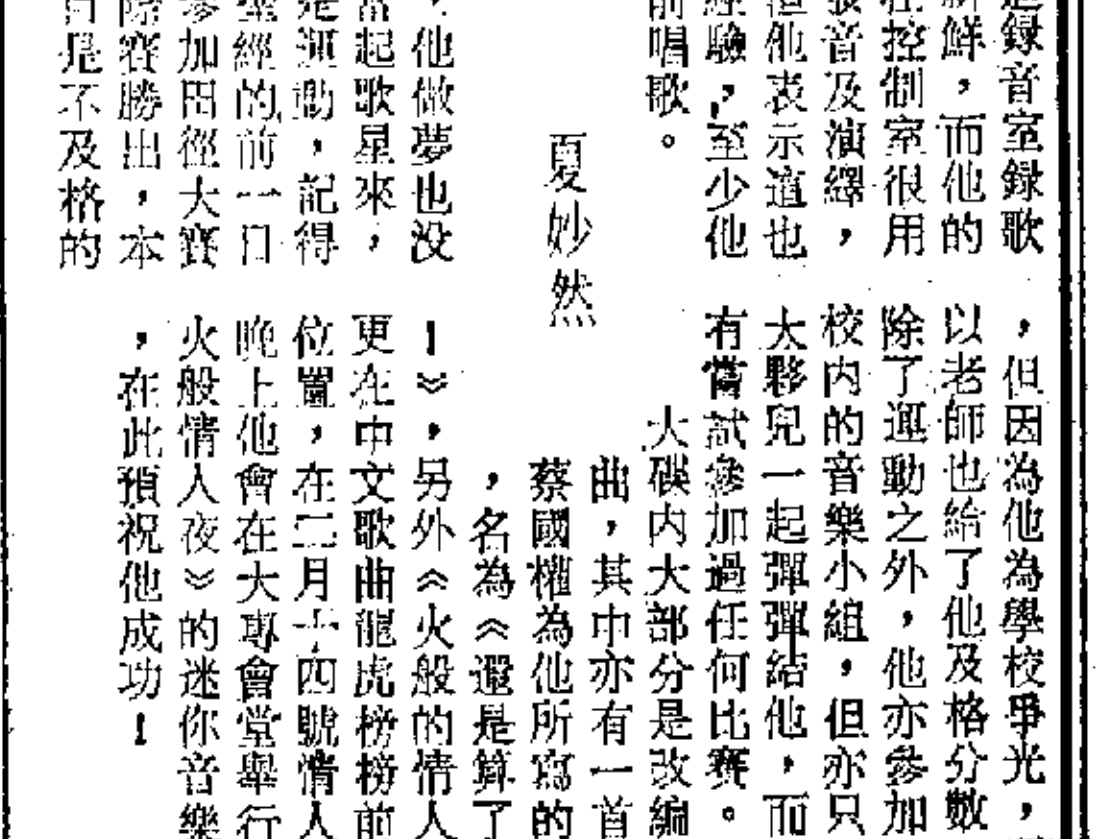 錄音室錄歌
新鮮,而他的
在控制室很用
發音及演繹,
但他表示這也
經驗,至少他
前唱歌。
夏妙然
,他做夢也没
當起歌星來,
是運動,記得
經的前一日
參加田徑大賽
際賽勝出,本
目是不及格的
,但因為他為學校爭光,
以老師也給了他及格分數
除了運動之外,他亦參加
校内的音樂小組,但亦只
大夥兒一起彈彈結他,而
有嘗試參加過任何比賽。
大碟内大部分是改編
曲,其中亦有一首
蔡國權為他所寫的
,名為《還是算了
!》,另外《火般的情人
更在中文歌曲龍虎榜榜前
位置,在二月十四號情人
晚上他會在大專會堂舉行
火般情人夜》的迷你音樂
,在此預祝他成功!